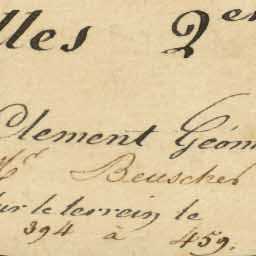 lles 2er
Clement Géom
Mr Beuscher
sur le terrein le
394 à 459.